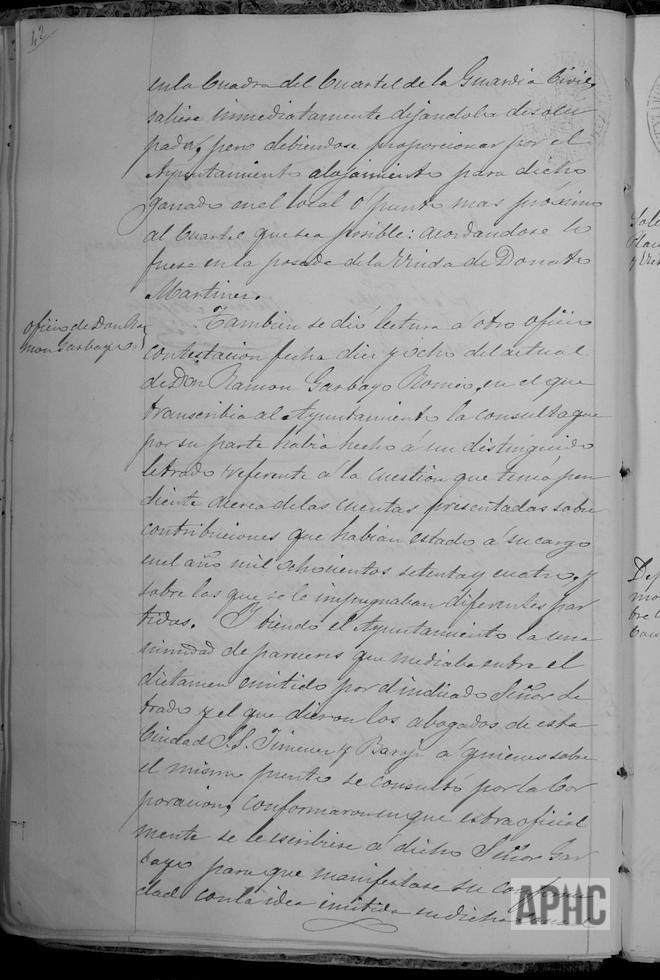 42
en la Cuadra del Cuartel de la Guardia Civil,
saliese inmediatamente dejandola desocu
pada, pero debiendose proporcionar por el
Ayuntamiento alojamiento para dicho
ganado en el local o punto mas proximo
al Cuartel que sea posible: acordandose lo
fuese en la posada de la Viuda de Donato
Martinez.
Oficio de Don Ra
mon Garbayo.
Tambien se dió lectura á otro oficio
contestacion fecha diez y ocho del actual
de Don Ramon Garbayo Romeo, en el que
transcribia al Ayuntamiento la consulta que
por su parte habia hecho á un distinguido
letrado referente á la cuestion que tenia pen
diente acerca de las cuentas presentadas sobre
contribuciones que habian estado á su cargo
en el año mil ochocientos setenta y cuatro, y
sobre las que se le impugnaban diferentes par
tidas. Y biendo el Ayuntamiento la una
nimidad de pareceres que mediaba entre el
dictamen emitido por dindicado Señor Le
trado y el que dieron los abogados de esta
Ciudad S.S. Jimenez y a quienes sobre
el mismo punto se consultó por la Cor
poracion, conformaron en que estraoficial
mente se le escribiese á dicho Señor Gar
bayo para que manifestase su conformi
dad con la idea emitida en dicha
Sole
Plaz
Dep
mo
bre
APHC